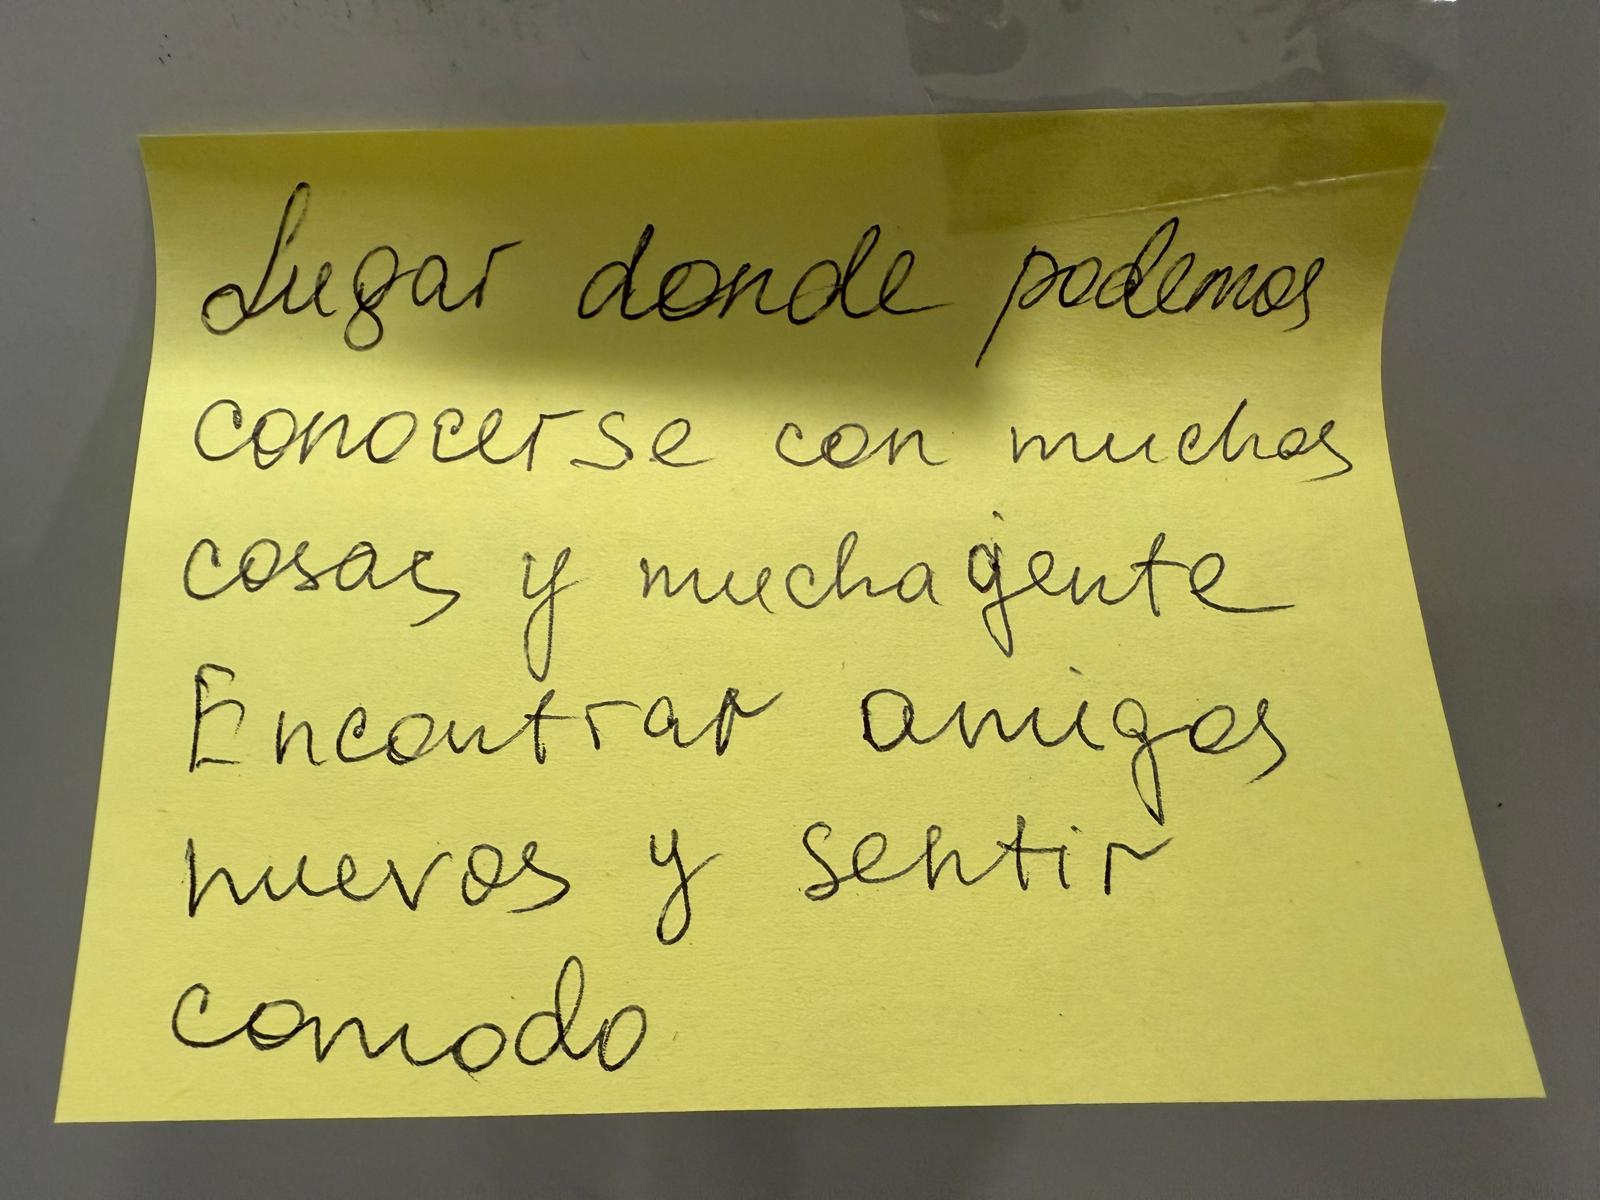 Lugar donde podemos
conocerse con muchos
cosas y mucha gente
Encontrar amigos
nuevos y sentir
comodo